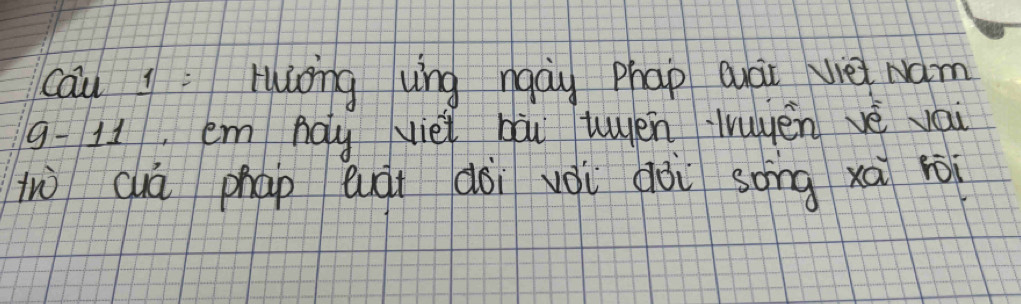 Câu 1 : Hưởng ứng ngày pháp luật Việt Nam
9-11, em hãy viết bài tuyên truyền về vai
trò của pháp luật đối với đời sống xã hội